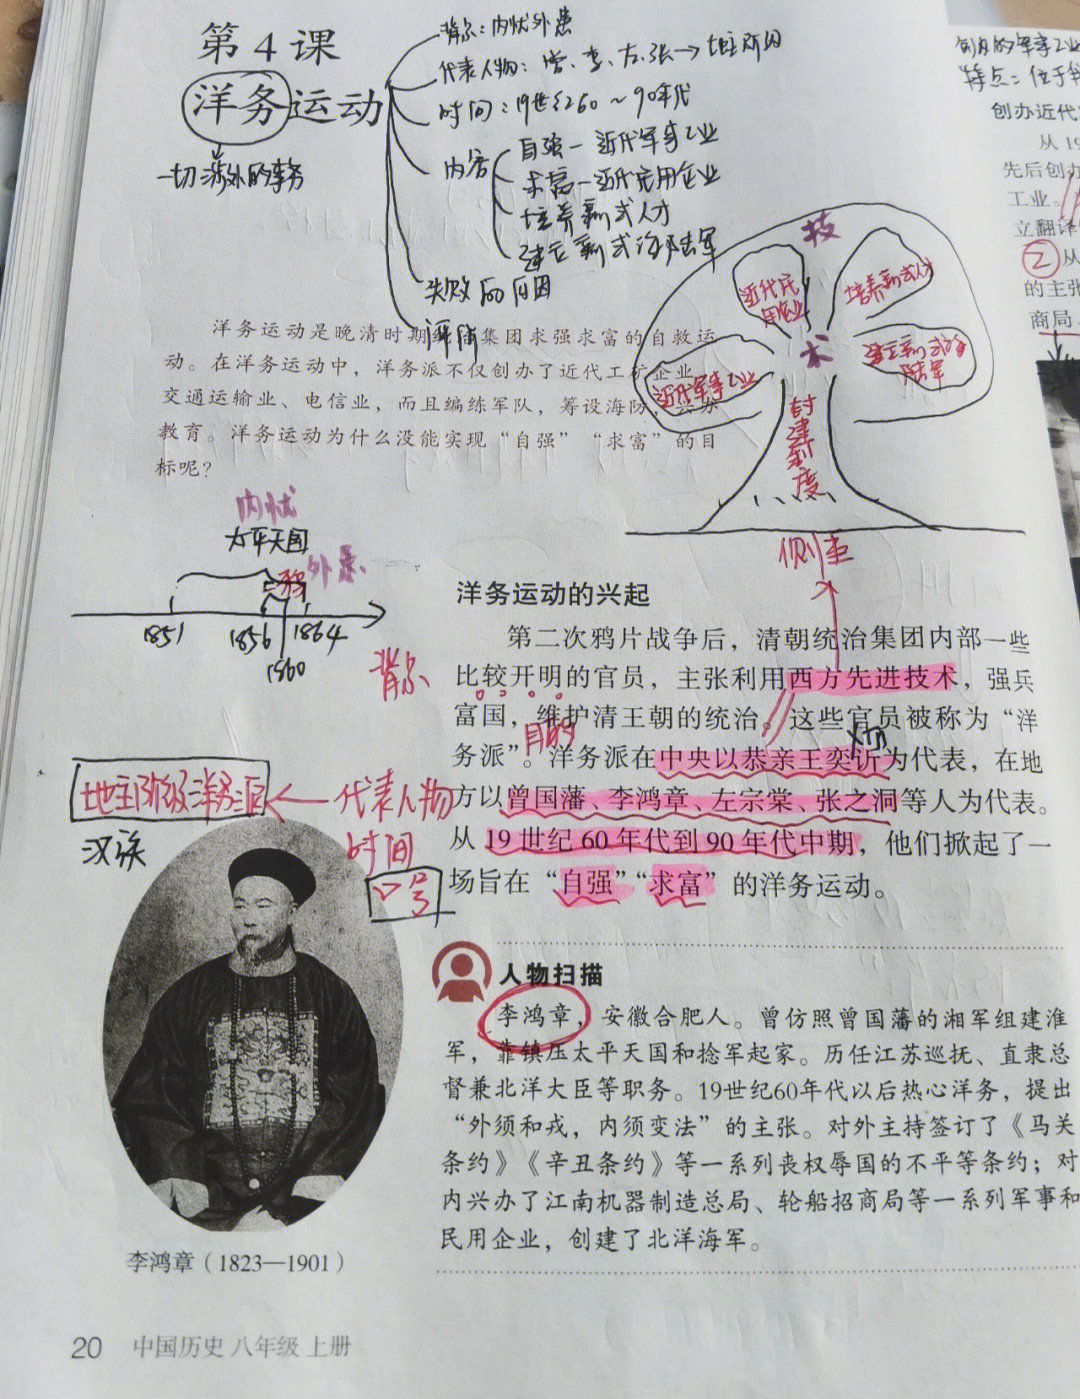 第4课
洋务运动
一切涉外的事务
背景：内忧外患
代表人物：曾、李、左、张→地主阶级
时间：19世纪60～90年代
内容
自强—近代军事工业
求富—近代民用企业
培养新式人才
建立新式海陆军
失败的原因
评价
洋务运动是晚清时期统治集团求强求富的自救运
动。在洋务运动中，洋务派不仅创办了近代工矿企业、
交通运输业、电信业，而且编练军队，筹设海防，兴办
教育。洋务运动为什么没能实现“自强”“求富”的目
标呢？
技
术
近代民
用企业
培养新式人才
近代军事工业
建立新式海
陆军
封建制度
内忧
太平天国
外患
1851
1856
1864
1860
背景
洋务运动的兴起
第二次鸦片战争后，清朝统治集团内部一些
比较开明的官员，主张利用西方先进技术，强兵
富国，维护清王朝的统治。这些官员被称为“洋
目的
务派”。洋务派在中央以恭亲王奕䜣为代表，在地
方以曾国藩、李鸿章、左宗棠、张之洞等人为代表。
从19世纪60年代到90年代中期，他们掀起了一
场旨在“自强”“求富”的洋务运动。
地主阶级洋务派
代表人物
汉族
时间
口号
人物扫描
李鸿章，安徽合肥人。曾仿照曾国藩的湘军组建淮
军，靠镇压太平天国和捻军起家。历任江苏巡抚、直隶总
督兼北洋大臣等职务。19世纪60年代以后热心洋务，提出
“外须和戎，内须变法”的主张。对外主持签订了《马关
条约》《辛丑条约》等一系列丧权辱国的不平等条约；对
内兴办了江南机器制造总局、轮船招商局等一系列军事和
民用企业，创建了北洋海军。
李鸿章（1823—1901）
20 中国历史 八年级 上册
创办的军事工业
特点：位于
创办近代
从19
先后创办
工业。
立翻译
②从
的主张
商局